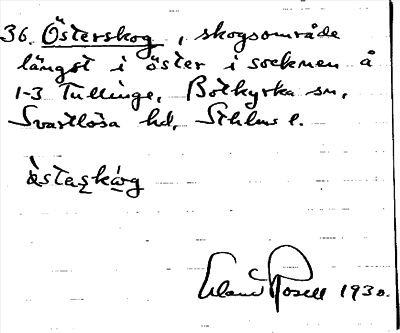 36. Österskog, skogsområde
längst i öster i socknen å
1-3 Tullinge, Botkyrka sn,
Svartlösa hd, Sthlms l.
Erland Rosell 1930.